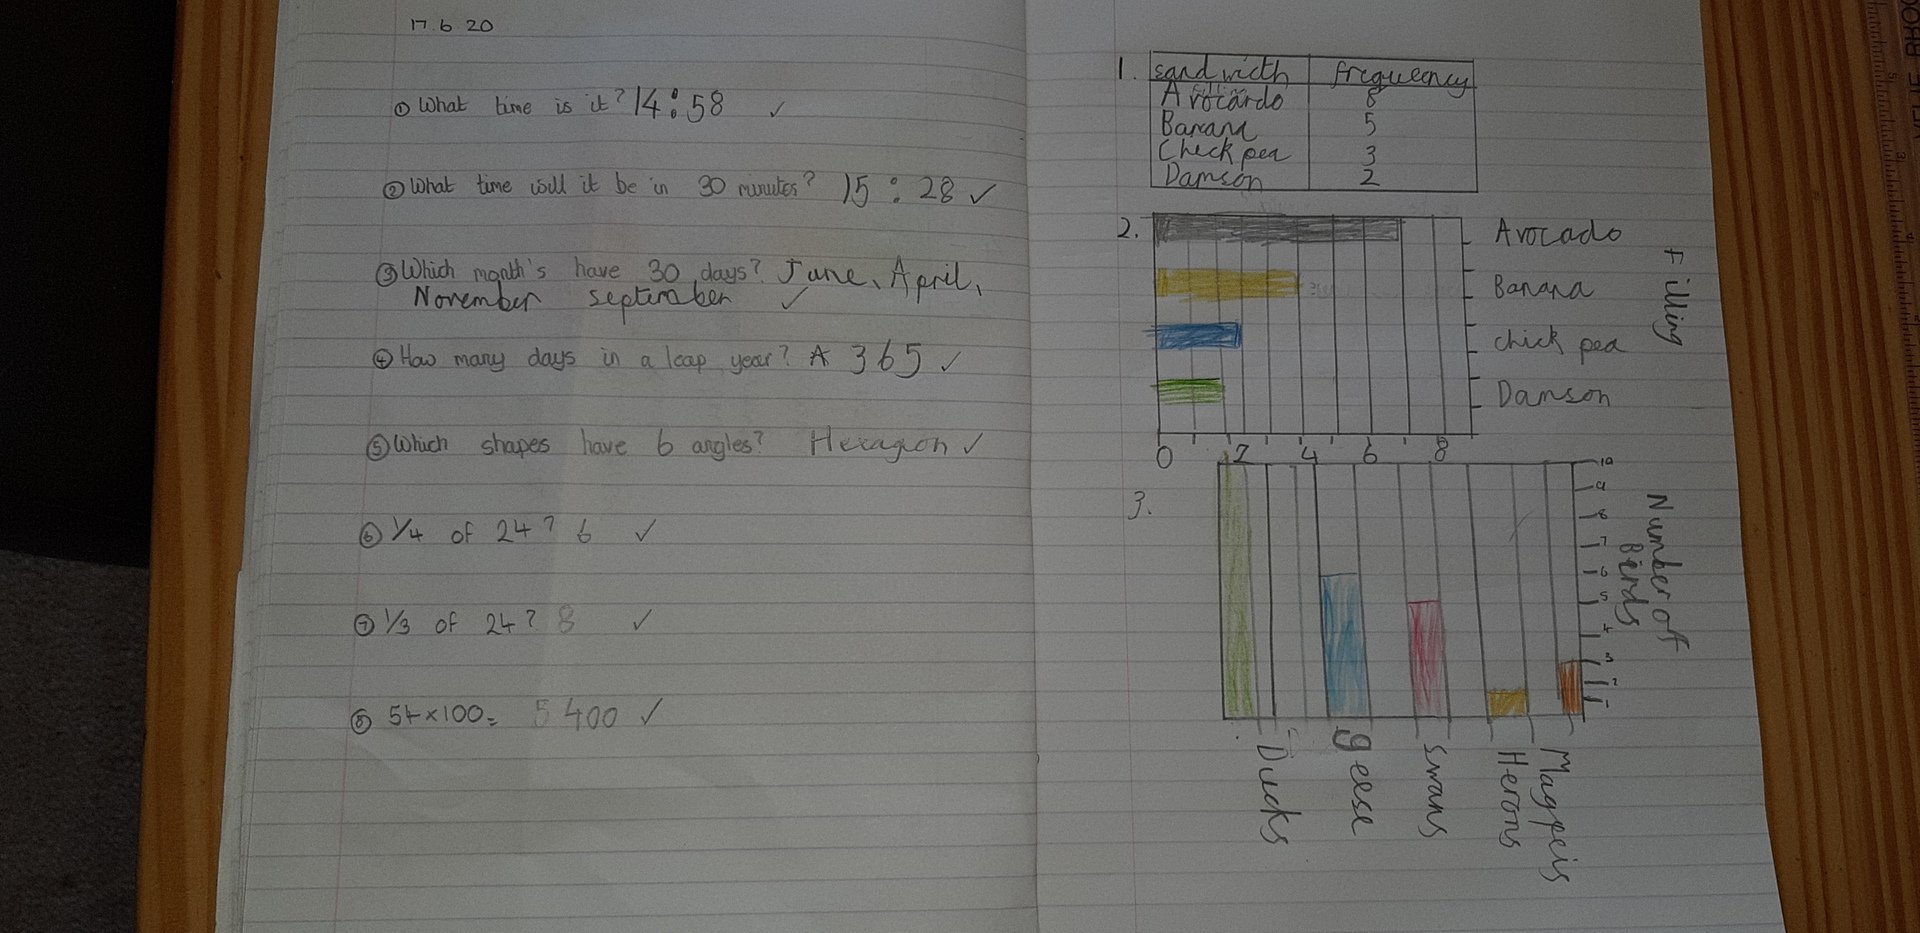 17.6.20
① What time is it? 14:58 ✓
② What time will it be in 30 minutes? 15:28 ✓
③ Which month's have 30 days? June, April,
November september ✓
④ How many days in a leap year? A 365 ✓
⑤ Which shapes have 6 angles? Hexagon ✓
⑥ 1/4 of 24? 6 ✓
⑦ 1/3 of 24? 8 ✓
⑧ 54 x 100 = 5400 ✓
1. sandwicth frequency
Avocardo 8
Banana 5
Check pea 3
Damson 2
2.
Avocado
Banana
chick pea
Damson
Filling
0 2 4 6 8
3.
10
9
8
7
6
5
4
3
2
1
Number of
Birds
Ducks
geese
Swans
Herons
Magpeis